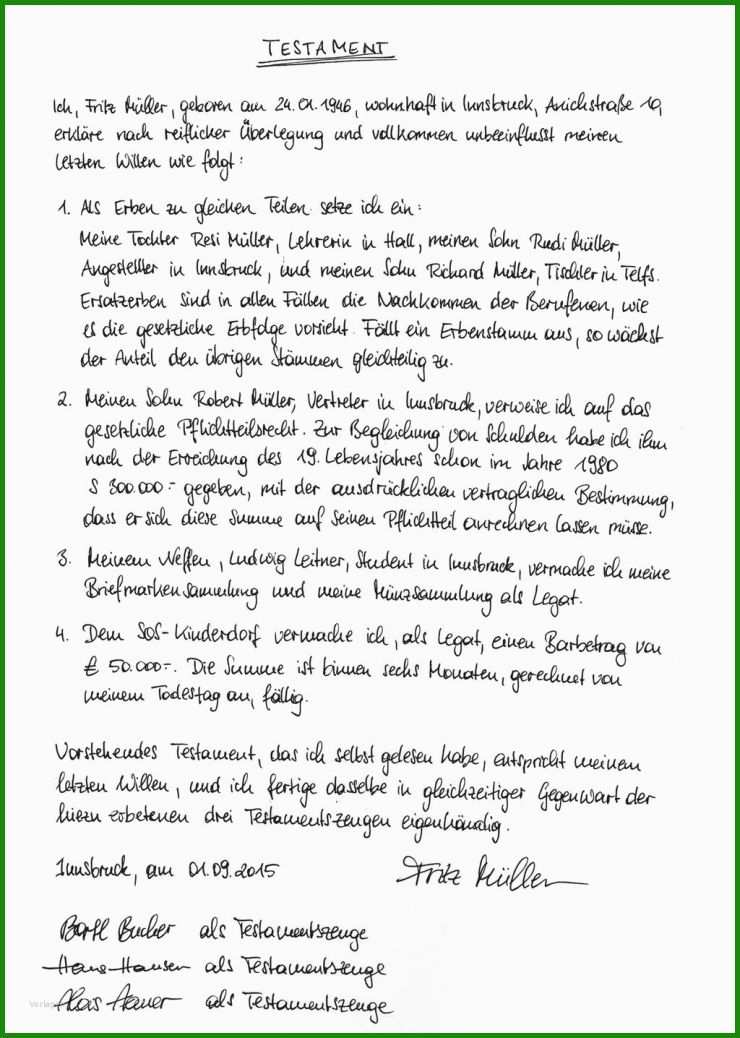 TESTAMENT
Ich, Fritz Müller, geboren am 24.01.1946, wohnhaft in Innsbruck, Anichstraße 19,
erkläre nach reiflicher Überlegung und vollkommen unbeeinflusst meinen
letzten Willen wie folgt:
1. Als Erben zu gleichen Teilen setze ich ein:
Meine Tochter Resi Müller, Lehrerin in Hall, meinen Sohn Rudi Müller,
Angestellter in Innsbruck, und meinen Sohn Richard Müller, Tischler in Telfs.
Ersatzerben sind in allen Fällen die Nachkommen der Berufenen, wie
es die gesetzliche Erbfolge vorsieht. Fällt ein Erbenstamm aus, so wächst
der Anteil den übrigen Stämmen gleichteilig zu.
2. Meinen Sohn Robert Müller, Vertreter in Innsbruck, verweise ich auf das
gesetzliche Pflichtteilsrecht. Zur Begleichung von Schulden habe ich ihm
nach der Erreichung des 19. Lebensjahres schon im Jahre 1980
S 300.000.- gegeben, mit der ausdrücklichen vertraglichen Bestimmung,
dass er sich diese Summe auf seinen Pflichtteil anrechnen lassen müsse.
3. Meinem Neffen, Ludwig Leitner, Student in Innsbruck, vermache ich meine
Briefmarkensammlung und meine Münzsammlung als Legat.
4. Dem SOS-Kinderdorf vermache ich, als Legat, einen Barbetrag von
€ 50.000.-. Die Summe ist binnen sechs Monaten, gerechnet von
meinem Todestag an, fällig.
Vorstehendes Testament, das ich selbst gelesen habe, entspricht meinem
letzten Willen, und ich fertige dasselbe in gleichzeitiger Gegenwart der
hiezu erbetenen drei Testamentszeugen eigenhändig.
Innsbruck, am 01.09.2015 Fritz Müller
Bartl Bucher als Testamentszeuge
Hans Hansen als Testamentszeuge
Alois als Testamentszeuge